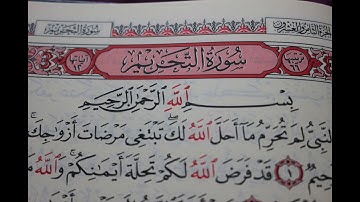 سُورَةُ التَّحْرِيمِ
سُورَةُ التَّحْرِيمِ
بِسْمِ اللَّهِ الرَّحْمَٰنِ الرَّحِيمِ
النَّبِيُّ لِمَ تُحَرِّمُ مَا أَحَلَّ اللَّهُ لَكَ تَبْتَغِي مَرْضَاتَ أَزْوَاجِكَ
حِيمٌ ١ قَدْ فَرَضَ اللَّهُ لَكُمْ تَحِلَّةَ أَيْمَانِكُمْ وَاللَّهُ